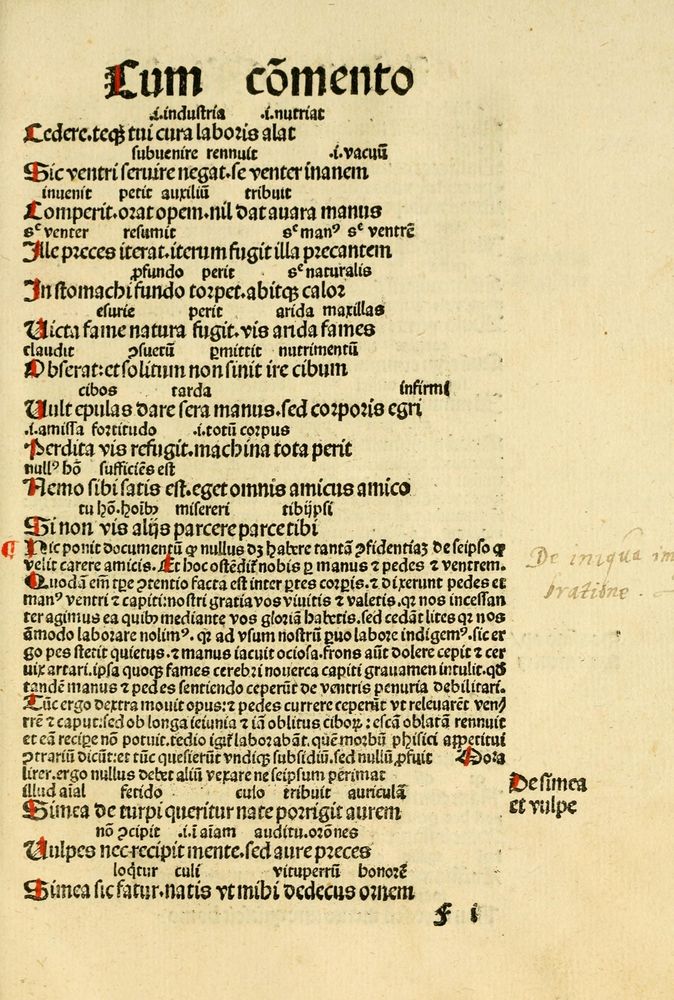 Cum cõmento
.i.industria .i.nutriat
Cedere.teqȝ tui cura laboris alat
subuenire rennuit .i.vacuũ
Sic ventri seruire negat.se venter inanem
inuenit petit auxiliũ tribuit
Comperit.orat opem.nil dat auara manus
sᶜ venter resumit sᶜ manꝰ sᶜ ventrẽ
Ille preces iterat.iterum fugit illa precantem
ꝓfundo perit sᶜ naturalis
In stomachi fundo torpet.abitqȝ calor
esurie perit arida maxillas
Uicta fame natura fugit.vis arida fames
claudit ꝯsuetũ ꝑmittit nutrimentũ
Obserat:et solitum non sinit ire cibum
cibos tarda infirmi
Uult epulas dare sera manus.sed corporis egri
.i.amissa fortitudo .i.totũ corpus
Perdita vis refugit.machina tota perit
nullꝰ hõ sufficiẽs est
Nemo sibi satis est.eget omnis amicus amico
tu hõ.hoĩbꝰ misereri tibijpsi
Si non vis alijs parcere parce tibi
¶ Hic ponit documentũ ꝙ nullus dȝ habere tantã ꝯfidentiaȝ de seipso ꝙ
velit carere amicis. Et hoc ostendit̃ nobis ꝑ manus ⁊ pedes ⁊ ventrem.
Quodã em̃ tꝑe ꝯtentio facta est inter ꝑtes corꝑis.⁊ dixerunt pedes et
manꝰ ventri ⁊ capiti:nostri gratia vos viuitis ⁊ valetis.qr nos incessan
ter agimus ea quibꝰ mediante vos gloriã habetis.sed cedant lites qr nos
ãmodo laborare nolimꝰ. qr ad vsum nostrũ ꝑuo labore indigemꝰ.sic er
go pes stetit quietus.⁊ manus iacuit ociosa.frons aũt dolere cepit ⁊ cer
uix artari.ipsa quoqȝ fames cerebri nouerca capiti grauamen intulit.qd̃
tandẽ manus ⁊ pedes sentiendo ceperũt de ventris penuria debilitari.
Tũc ergo dextra mouit opus:⁊ pedes currere ceperũt vt releuarẽt ven
trẽ ⁊ caput:sed ob longa ieiunia ⁊ iã oblitus ciboꝝ:escã oblatam rennuit
et eã recipe nõ potuit.tedio igit̃ laborabãt.quẽ morbũ phisici appetitui
ꝯtrariũ dicũt:et tũc quesierũt vndiqȝ subsidiũ.sed nullũ ꝓfuit Mora
lit̃er.ergo nullus debet aliũ vexare ne seipsum perimat
De iniqua im
oratione.
De simea
et vulpe
illud aĩal fetido culo tribuit auriculã
Simea de turpi queritur nate porrigit aurem
nõ ꝯcipit .i.ĩ aĩam auditu.orõnes
Uulpes nec recipit mente.sed aure preces
loqt̃ur culi vituperrũ honorẽ
Simea sic fatur.natis vt mihi dedecus ornem
f i